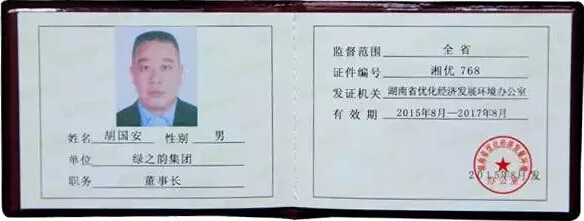 姓名 胡国安 性别 男
单位 绿之韵集团
职务 董事长
监督范围 全省
证件编号 湘优 768
发证机关 湖南省优化经济发展环境办公室
有效期 2015年8月—2017年8月
湖南省优化经济发展环境
办公室
2015年8月发